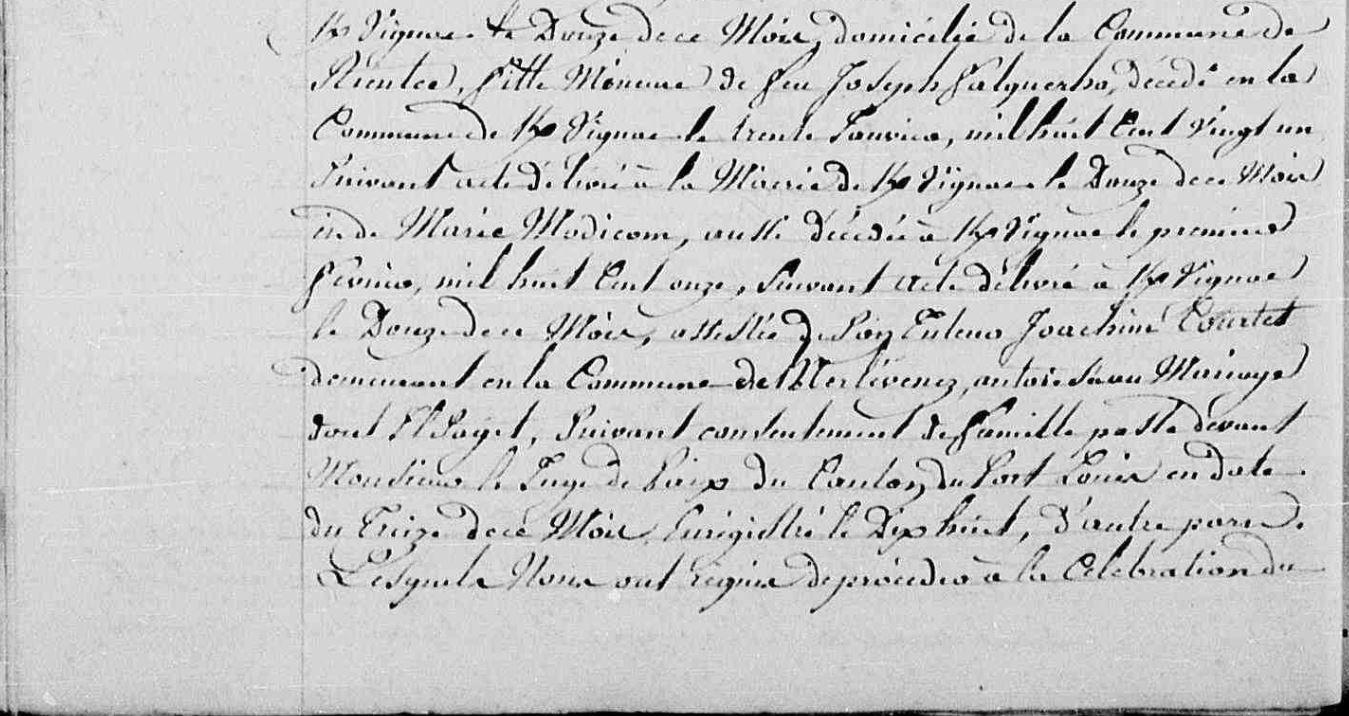 K/vignac le Douze de ce Mois, domicilié de la Commune de
Riantec, fille Mineure de feu Joseph Falquerho, décédé en la
Commune de K/vignac le trente Janvier, mil huit Cent Vingt un
Suivant acte délivré à la Mairie de K/vignac le Douze de ce Mois
et de Marie Modicom, aussi décédée à K/vignac le premier
Février, mil huit Cent onze, Suivant acte délivré à K/vignac
le Douze de ce Mois, assistée de Son Tuteur Joachim Courtet
demeurant en la Commune de Merlévenez, autorisé au Mariage
dont Il S'agit, Suivant consentement de famille passé devant
Monsieur le Juge de Paix du Canton du Port Louis en date
du Treize de ce Mois Enrégistré le Dix huit, D'autre part.
Lesquels Nous ont requis de procéder à la Celebration du